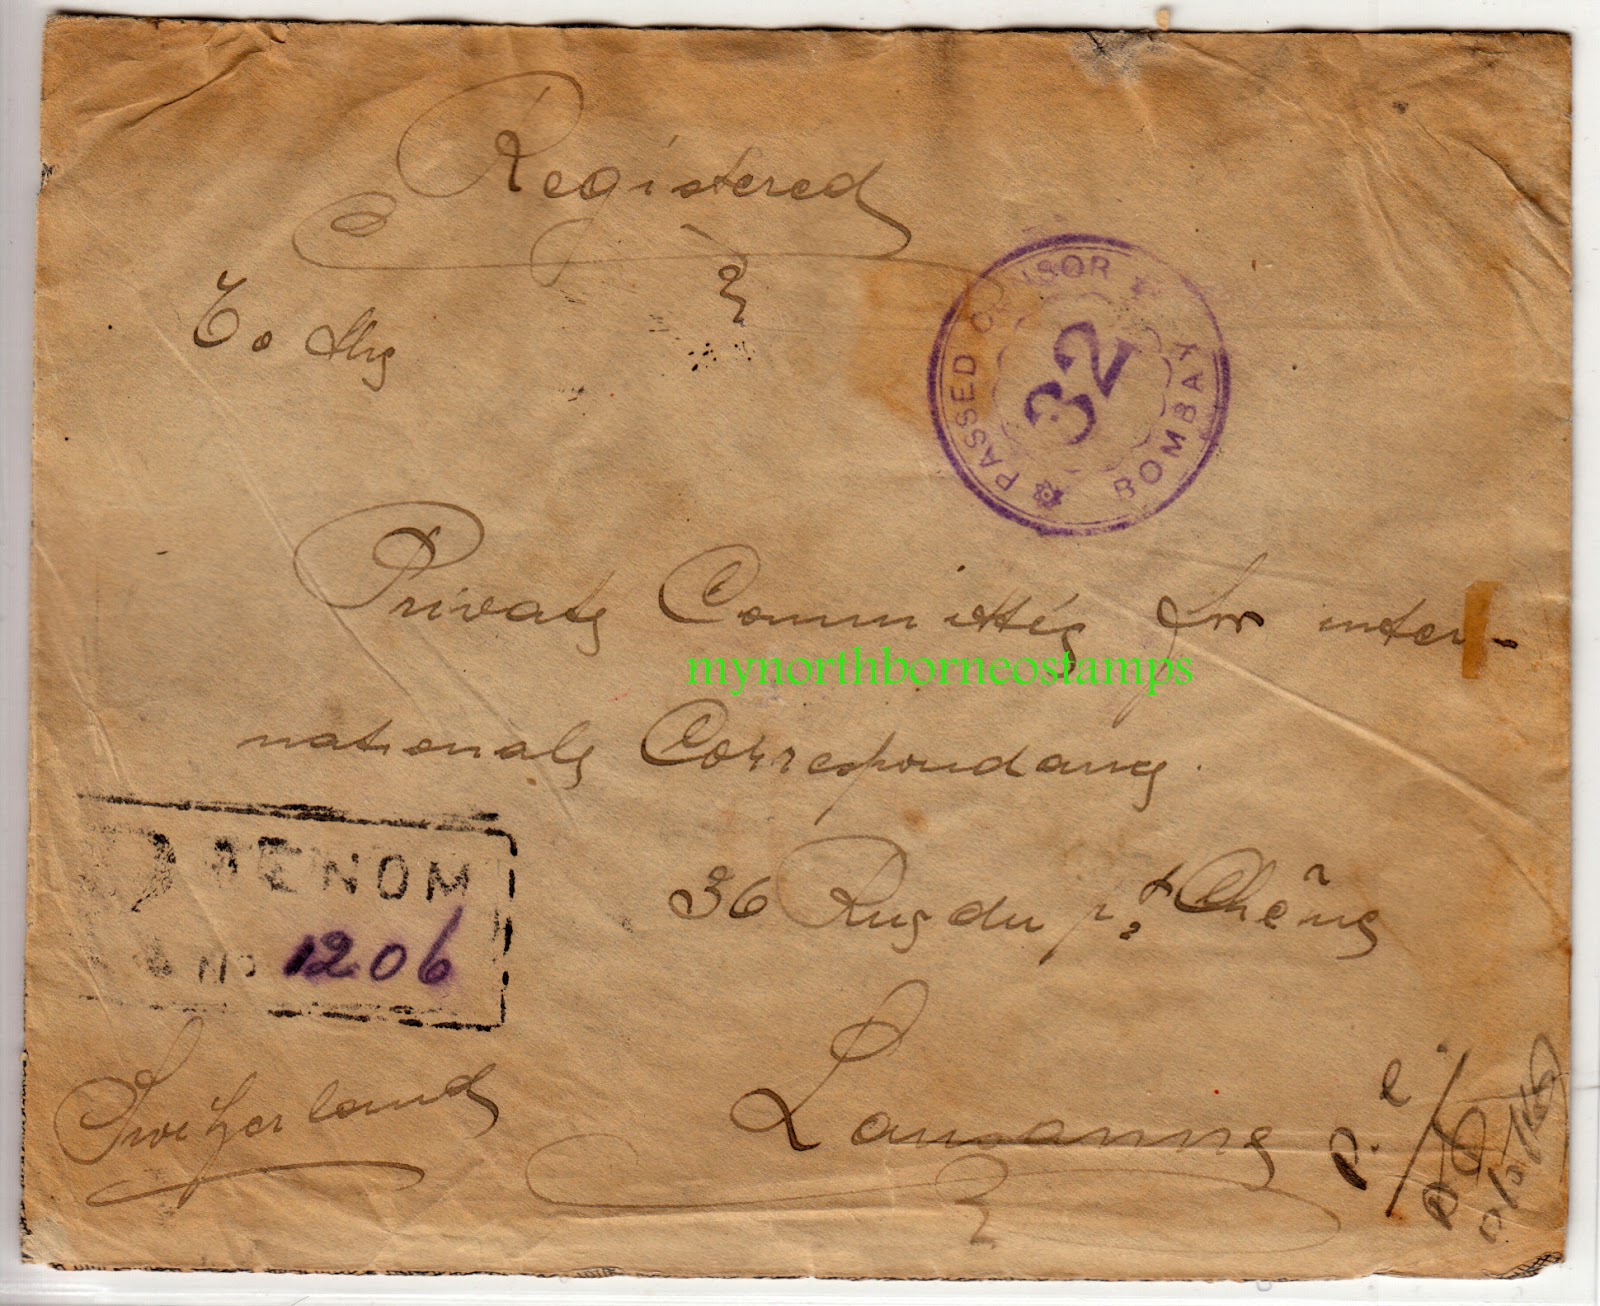 Registered
To the
PASSED CENSOR BOMBAY
32
Private Committee for inter-
mynorthborneostamps
nationale Correspondance.
R BENOM
No 1206
36 Rue du pt Chêne
Switzerland
Lausanne